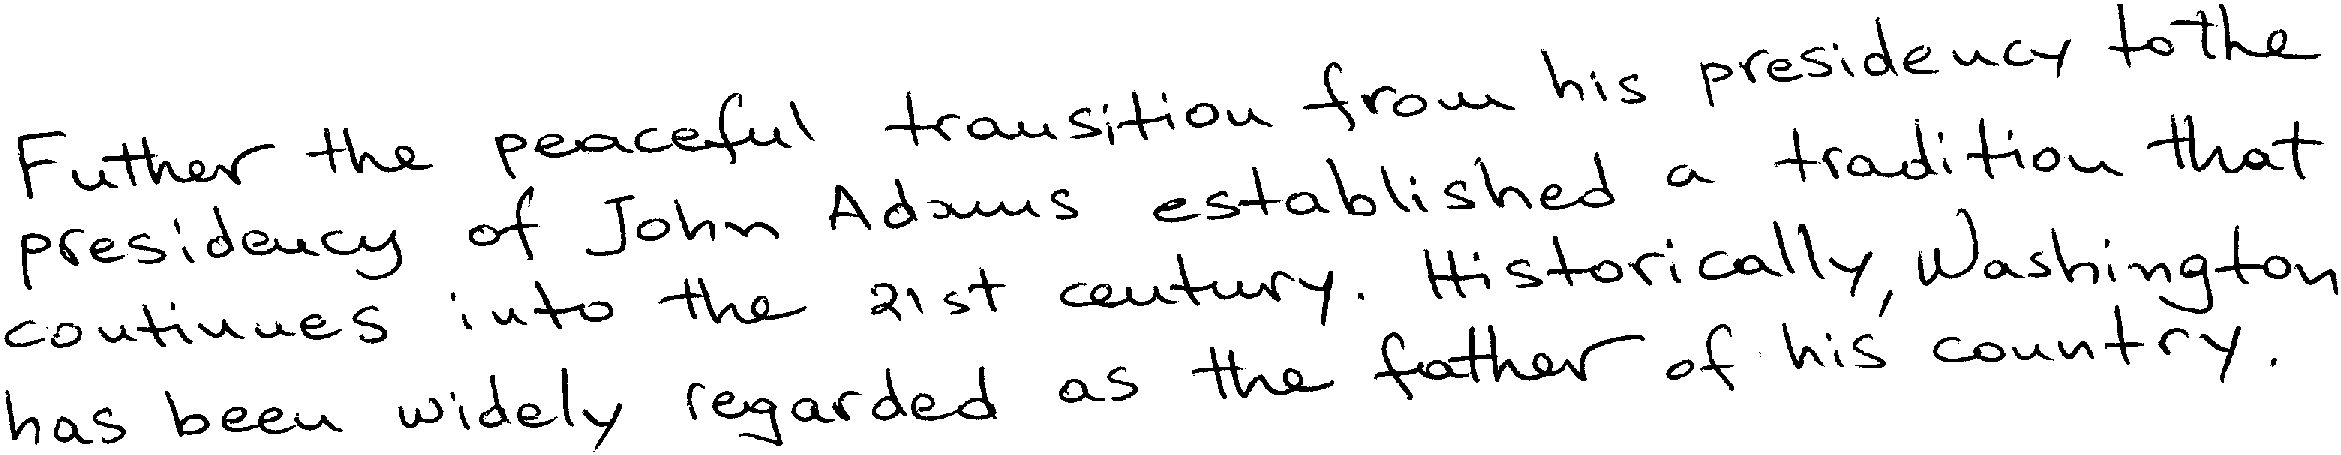 Futher the peaceful transition from his presidency to the
presidency of John Adams established a tradition that
continues into the 21st century. Historically, Washington
has been widely regarded as the father of his country.